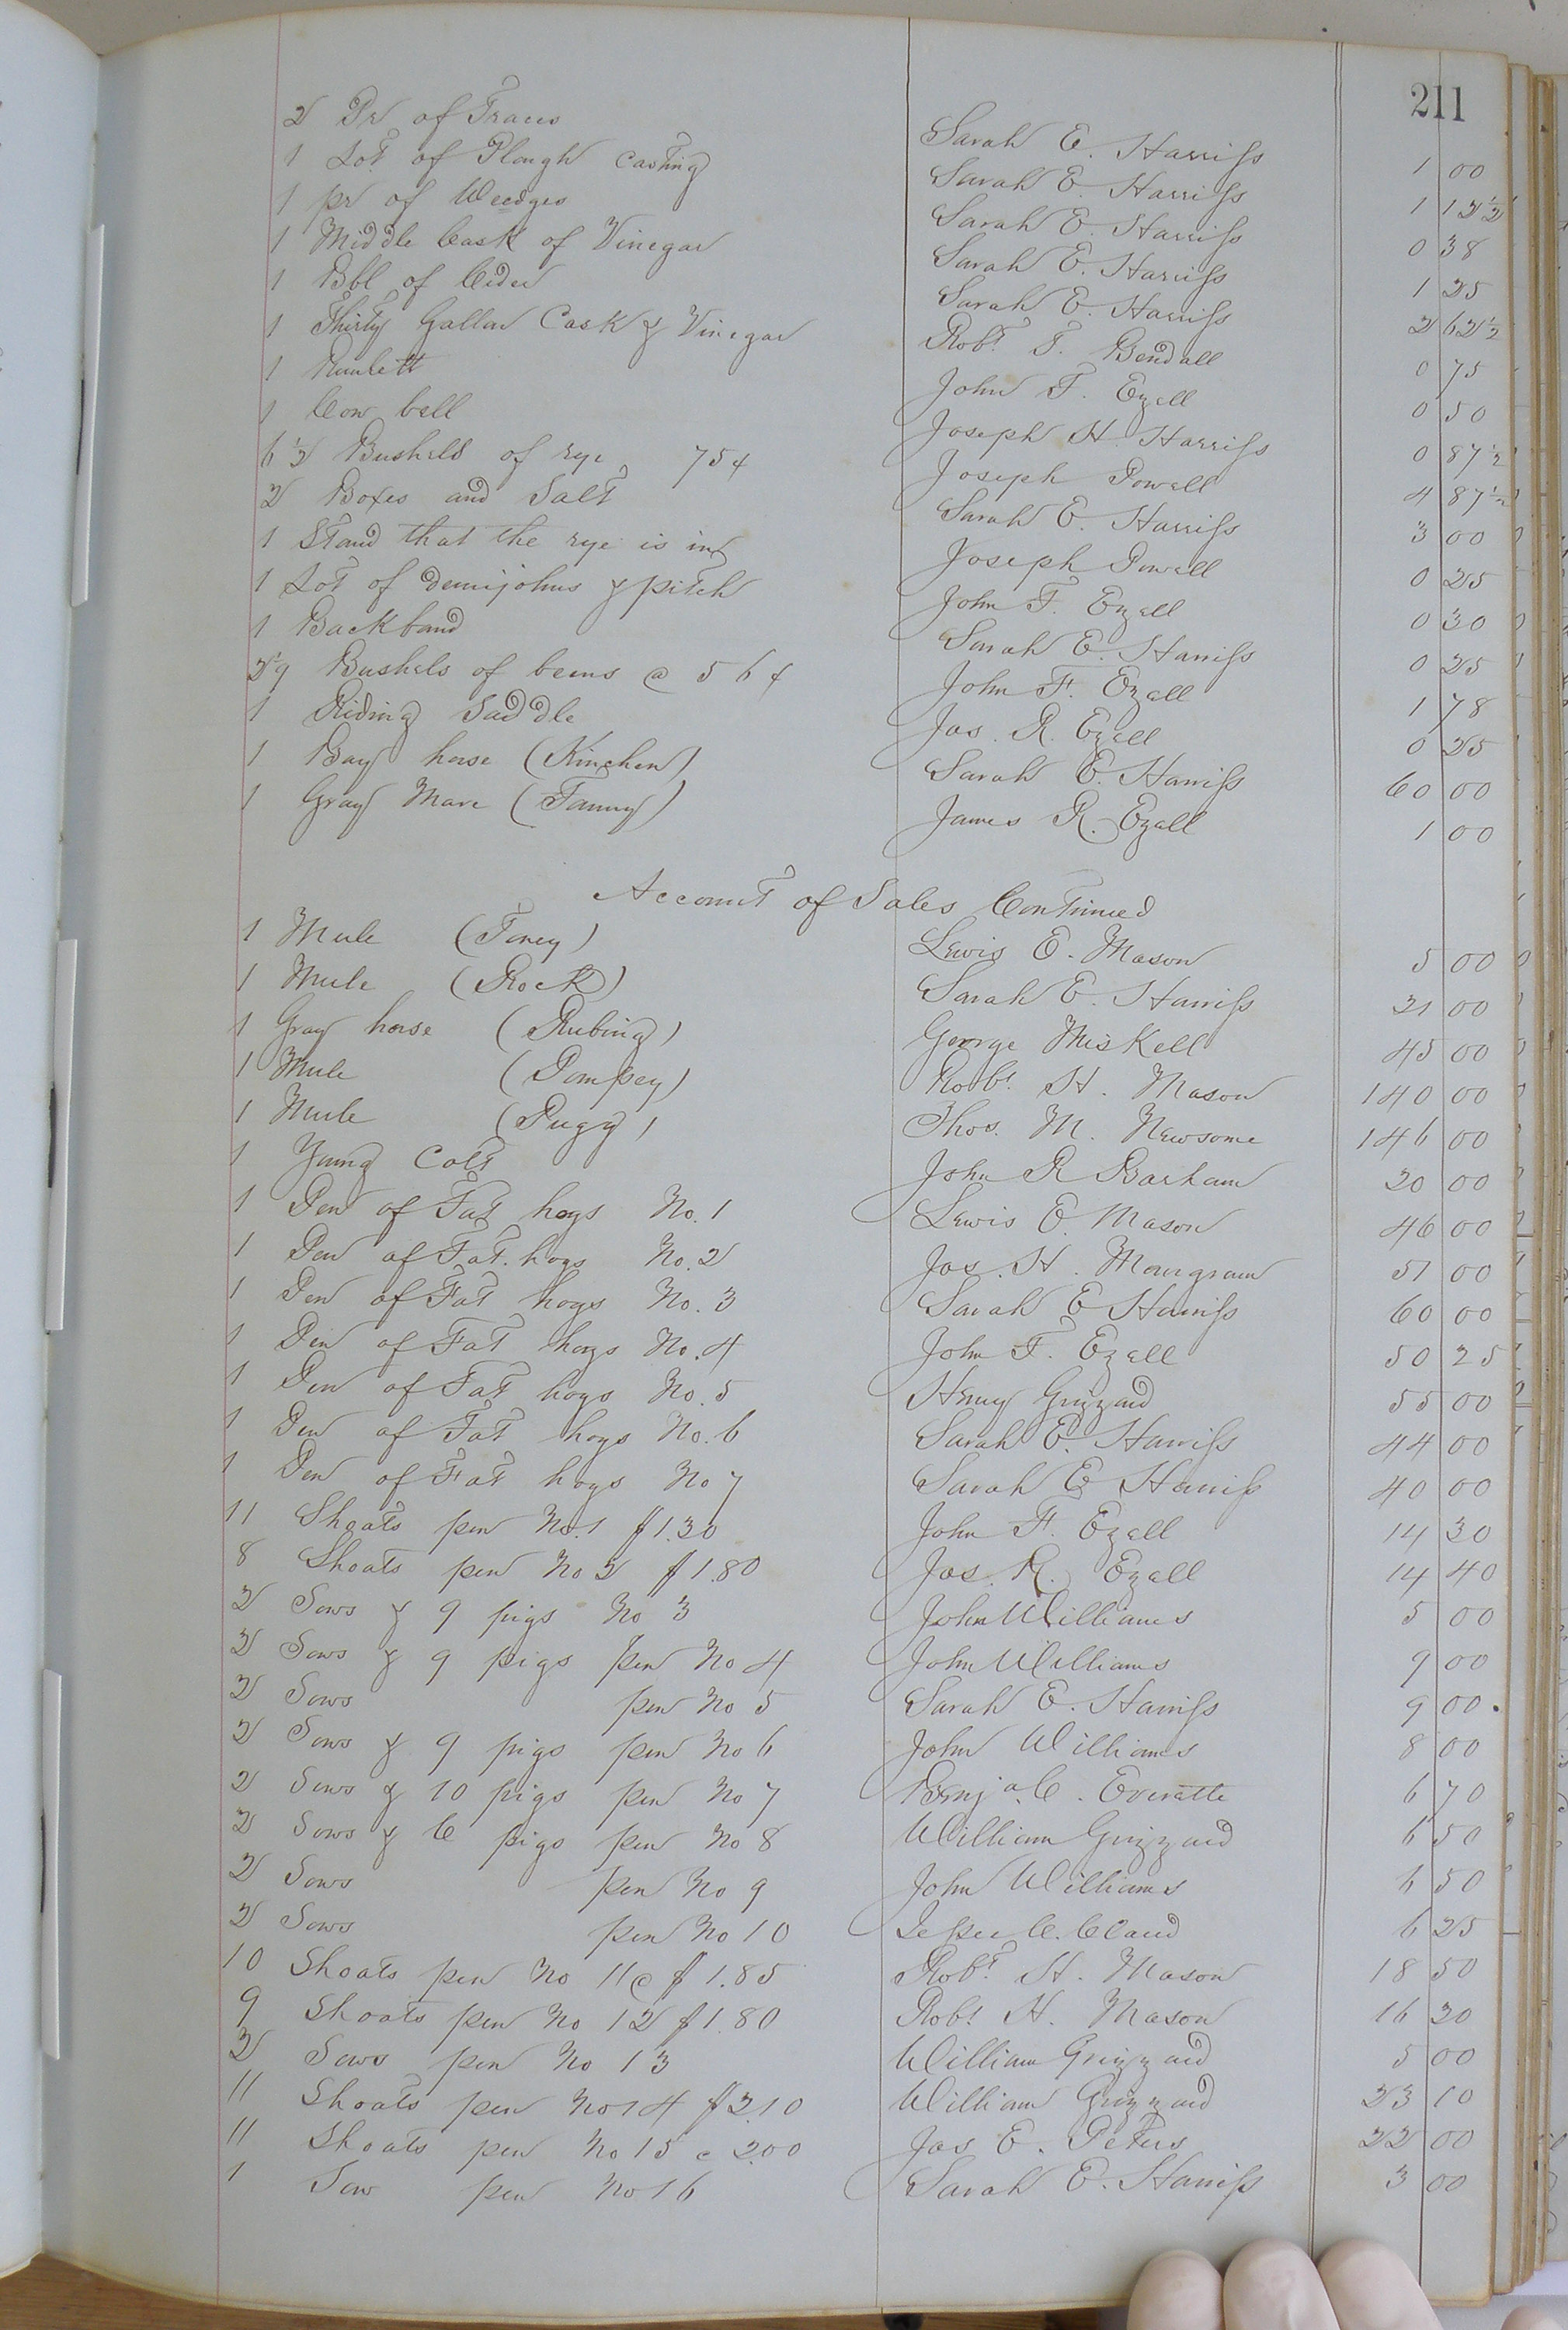 211
2 Pr of Traces Sarah E. Harriss 1 00
1 Lot of Plough Casting Sarah E. Harriss 1 12½
1 pr of Wedges Sarah E. Harriss 0 38
1 Middle Cask of Vinegar Sarah E. Harriss 1 25
1 Bbl of Cider Sarah E. Harriss 2 62½
1 Thirty Gallon Cask & Vinegar Robt. T. Bendall 0 75
1 Runlett John F. Ezell 0 50
1 Cow bell Joseph H. Harriss 0 87½
6½ Bushels of rye 75¢ Joseph Powell 4 87½
2 Boxes and Salt Sarah E. Harriss 3 00
1 Stand that the rye is in Joseph Powell 0 25
1 Lot of demijohns & pitch John F. Ezell 0 30
1 Backband Sarah E. Harriss 0 25
Bushels of beens @ 56¢ John F. Ezell 1 78
1 Riding Saddle Jas. R. Ezell 0 25
1 Bay horse (Kinchen) Sarah E. Harriss 60 00
1 Gray Mare (Fanny) James R. Ezell 1 00
Account of Sales Continued
1 Mule (Toney) Lewis E. Mason 5 00
1 Mule (Rock) Sarah E. Harriss 31 00
1 Gray horse (Rubing) George Miskell 45 00
1 Mule (Pompey) Robt. H. Mason 140 00
1 Mule (Pugg) Thos. M. Newsome 146 00
1 Young Colt John R Barham 20 00
1 Pen of Fat hogs No. 1 Lewis E. Mason 46 00
1 Pen of Fat hogs No. 2 Jas. H. 51 00
1 Pen of Fat hogs No. 3 Sarah E Harriss 60 00
1 Pen of Fat hogs No. 4 John F. Ezell 50 25
1 Pen of Fat hogs No. 5 Henry Grizzard 55 00
1 Pen of Fat hogs No. 6 Sarah E. Harriss 44 00
1 Pen of Fat hogs No 7 Sarah E Harriss 40 00
11 Shoats pen No. 1 $1.30 John F. Ezell 14 30
8 Shoats pen No 2 $1.80 Jas. R. Ezell 14 40
2 Sows & 9 pigs No 3 John Williams 5 00
2 Sows & 9 pigs pen No 4 John Williams 9 00
2 Sows pen No 5 Sarah E. Harriss 9 00.
2 Sows & 9 pigs pen No 6 John Williams 8 00
2 Sows & 10 pigs pen No 7 Benja. C. Everatte 6 70
2 Sows & 6 pigs pen No 8 William Grizzard 6 50
2 Sows pen No 9 John Williams 6 50
2 Sows pen No 10 Jessee C. Claud 6 25
10 Shoats pen No 11 @ $1.85 Robt. H. Mason 18 50
9 Shoats pen No 12 $1.80 Robt H. Mason 16 20
2 Sows pen No 13 William Grizzard 5 00
11 Shoats pen No 14 $2.10 William Grizzard 23 10
11 Shoats pen No 15 @ 2.00 Jas E. Peters 22 00
1 Sow pen No 16 Sarah E. Harriss 3 00